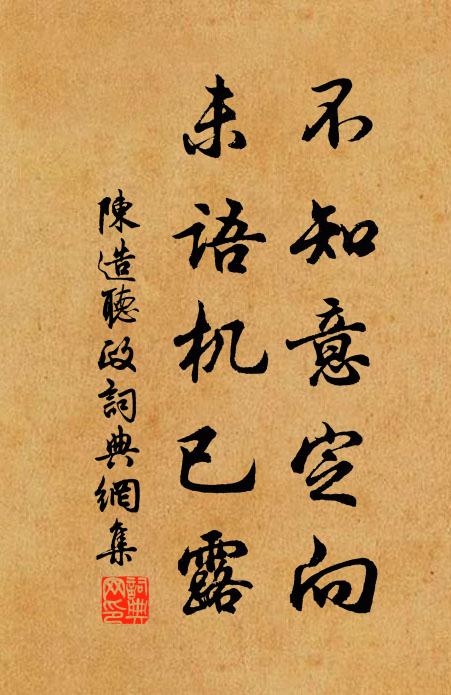 不知意定向
未语机已露
陳造聽政詞典網集
詞典网印